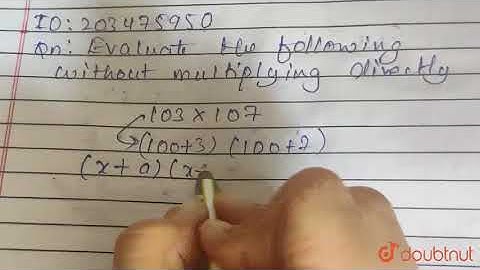 ID: 203475950
Qn: Evaluate the following
without multiplying directly
103 x 107
(100+3) (100+7)
(x+a) (x
doubtnut